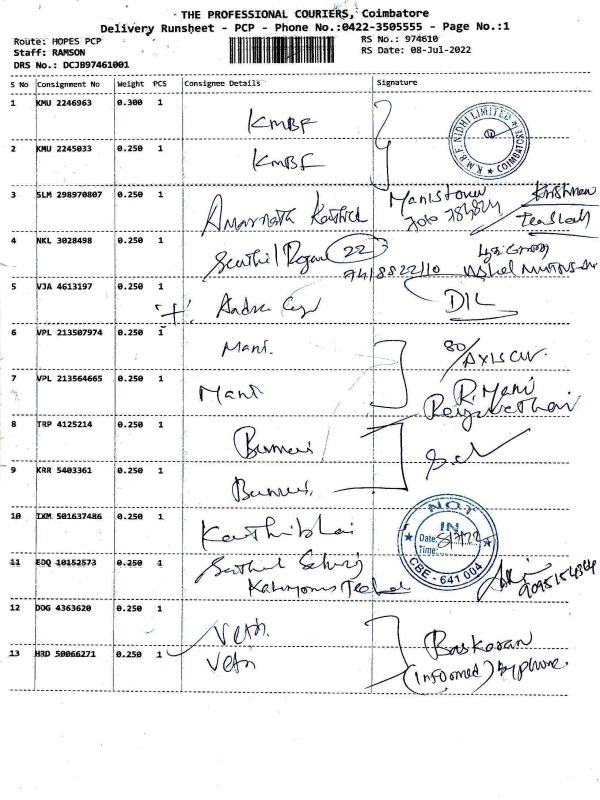 THE PROFESSIONAL COURIERS, Coimbatore
Delivery Runsheet - PCP - Phone No.:0422-3505555 - Page No.:1
Route: HOPES PCP
RS No.: 974610
Staff: RAMSON
RS Date: 08-Jul-2022
DRS No.: DCJB97461001
S No Consignment No Weight PCS Consignee Details Signature
1 KMU 2246963 0.300 1 KMBF
K.M.B.F. NIDHI LIMITED COIMBATORE
2 KMU 2245033 0.250 1 KMBF
3 SLM 298970807 0.250 1 Amarnath Karthick
Krishnan
4 NKL 3028498 0.250 1 Senthil 22
7418822110
5 VJA 4613197 0.250 1
6 VPL 213507974 0.250 1 Mani. 80/
7 VPL 213564665 0.250 1 Mani R. Mani
8 TRP 4125214 0.250 1
9 KRR 5403361 0.250 1
10 IXM 501637486 0.250 1 Karthibhai
NOT IN
Date: 8/7/22
Time:
CBE - 641 004
11 EDQ 10152573 0.250 1
12 DOG 4363620 0.250 1 Vetri.
13 HRD 50066271 0.250 1 Vetri
Baskaran
(Informed) by phone.